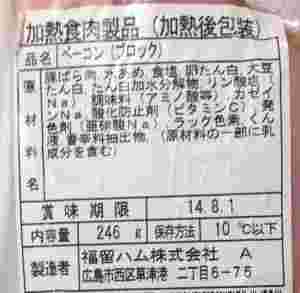 加熱食肉製品（加熱後包装）
品名 ベーコン（ブロック）
原材料名
豚ばら肉、水あめ、食塩、卵たん白、大豆
たん白、たん白加水分解物、リン酸塩（
Na）、調味料（アミノ酸等）、カゼイ
ンNa、酸化防止剤（ビタミンC）、発
色剤（亜硝酸Na）、コチニール色素、くん
液、香辛料抽出物、（原材料の一部に乳
成分を含む）
賞味期限 14.8.1
内容量 246g 保存方法 10℃以下
製造者 福留ハム株式会社 A
広島市西区草津港 二丁目6-75